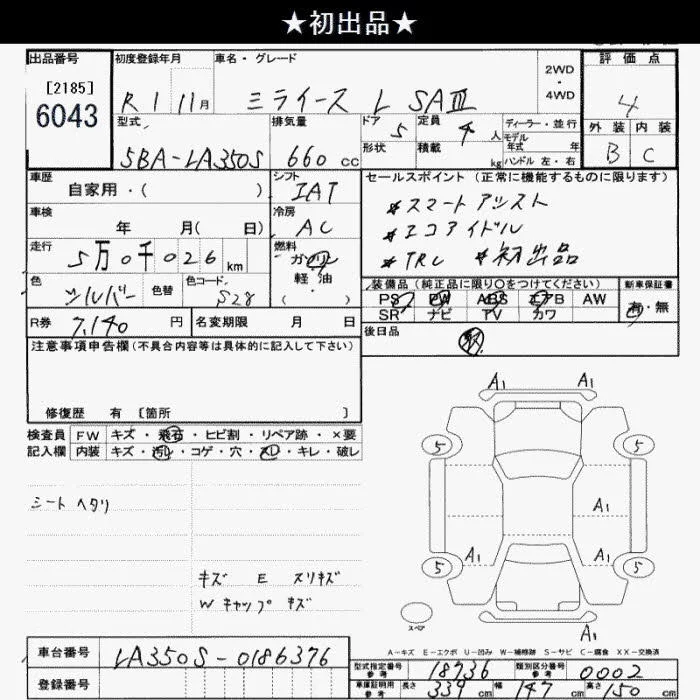 ★初出品★
出品番号
[2185]
6043
初度登録年月
R 1 11月
車名・グレード
ミライース L SAⅢ
2WD
・
4WD
評価点
4
外装 内装
B C
型式
5BA-LA350S
排気量
660 cc
ドア 5
形状
定員 4 人
積載 kg
ディーラー・並行
モデル
年式 年
ハンドル 左・右
車歴
自家用・( )
シフト
IAT
セールスポイント (正常に機能するものに限ります)
*スマートアシスト
*エコアイドル
*TRC *初出品
車検
年 月( 日)
冷房
AC
走行
5万0千026km
燃料
ガソリン
軽・油
・( )
色
シルバー
色替
色コード
S28
装備品 (純正品に限り○をつけてください)
PS PW ABS エアB AW
SR ナビ TV カワ
新車保証書
有・無
R券 7,140 円
名変期限 月 日
後日品
取
注意事項申告欄(不具合内容等は具体的に記入して下さい)
修復歴 有 [箇所 ]
検査員 FW キズ・飛石・ヒビ割・リペア跡・×要
記入欄 内装 キズ・汚れ・コゲ・穴・スレ・キレ・破レ
シート ヘタリ
キズ E スリキズ
W キャップ キズ
A1 A1
5 5
A1
A1 A1
5 5
スペア
A1
A-キズ E-エクボ U-凹み W-補修跡 S-サビ C-腐食 XX-交換済
車台番号 LA350S-0186376
登録番号
型式指定番号
参考
18736
類別区分番号
参考
0002
車庫証明用
参考
長さ 339 cm 幅 147 cm 高さ 150 cm